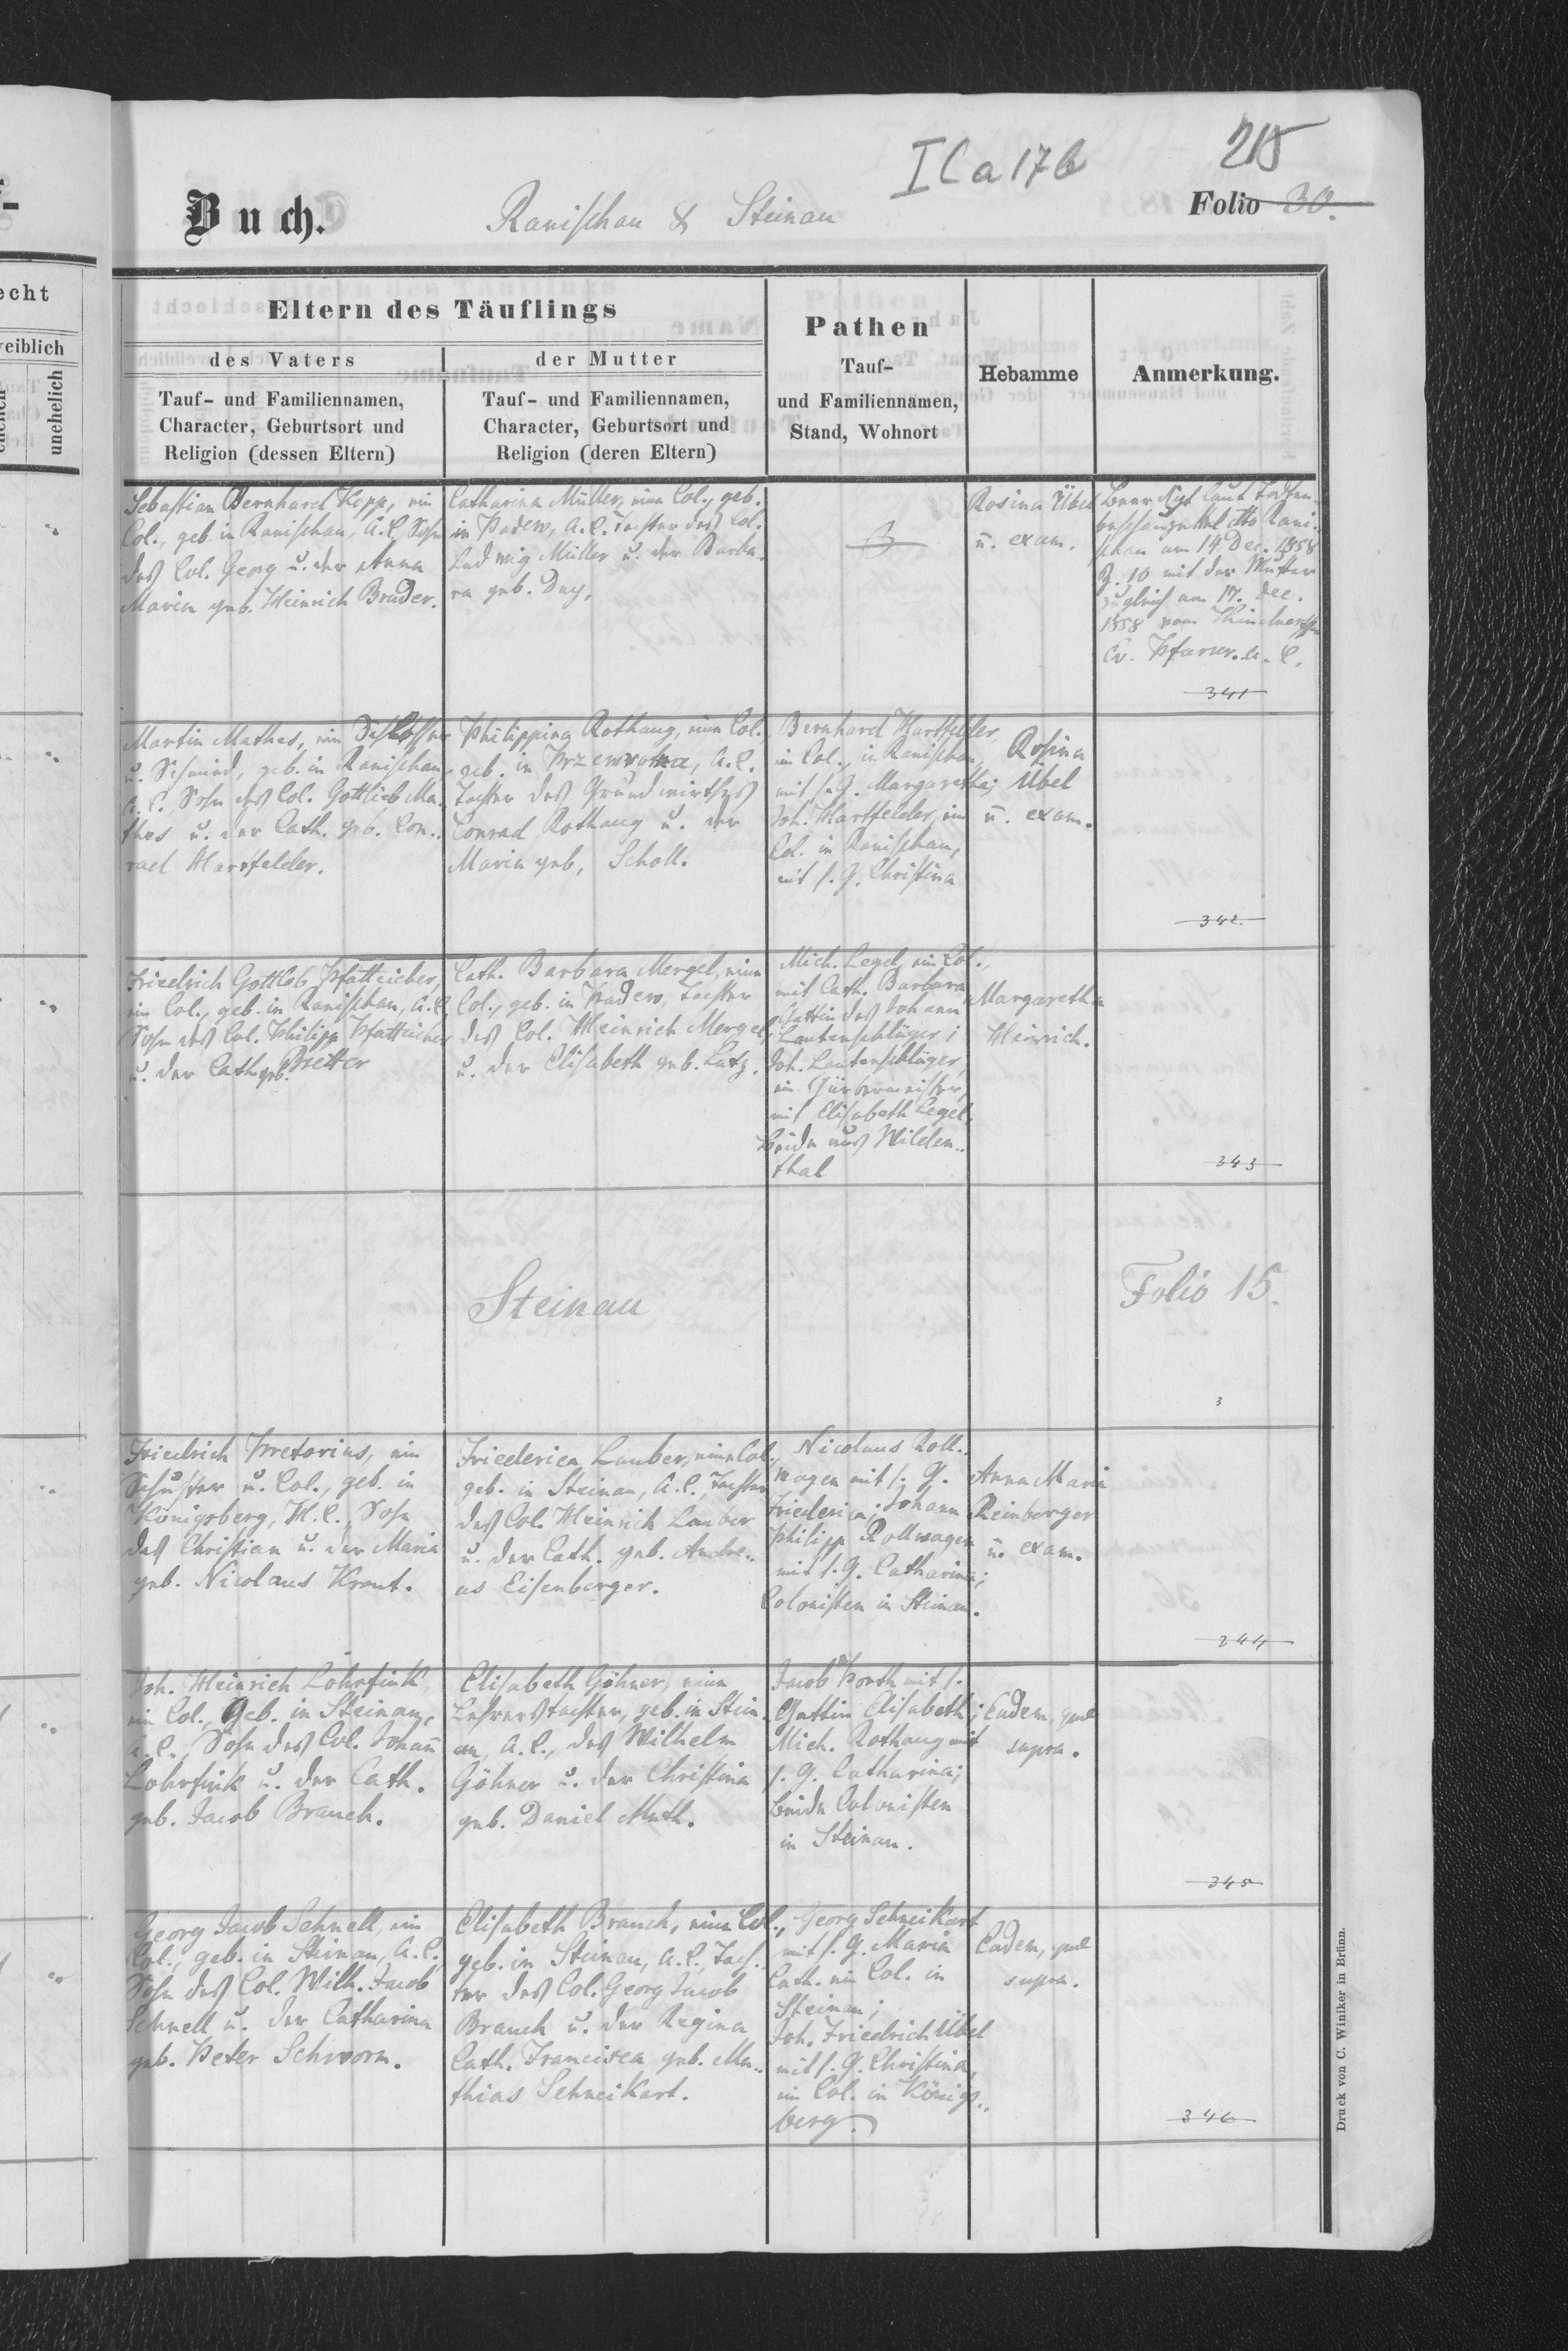 I C a 17 b
215
Buch.
Ranischau & Steinau
Folio 30.
echt
weiblich
unehelich
Eltern des Täuflings
des Vaters
der Mutter
Tauf- und Familiennamen,
Character, Geburtsort und
Religion (dessen Eltern)
Tauf- und Familiennamen,
Character, Geburtsort und
Religion (deren Eltern)
Pathen
Tauf-
und Familiennamen,
Stand, Wohnort
Hebamme
Anmerkung.
Sebastian Bernhard Kopp, ein
Col., geb. in Ranischau, A. C., Sohn
des Col. Georg u. der Anna
Maria geb. Heinrich Bruder.
Catharina Müller, eine Col., geb.
in Padew, A. C. Tochter des Col.
Ludwig Müller u. der Barba-
ra geb. Dey.
Rosina Übel
u. exam.
Beerdigt laut Todten-
beschauzettel dto Rani-
schau am 14. Dec. 1858
Z. 10 mit der Mutter
zugleich am 17. Dec.
1858 vom
Ev. Pfarrer. A. C.
341
Martin Mathes, ein Schlosser
u. Schmied, geb. in Ranischau
A. C., Sohn des Col. Gottlieb Ma-
thes u. der Cath. geb. Con-
rad Hartfelder.
Philippina Rothaug, eine Col.,
geb. in Przewrotna, A. C.
Tochter des Grundwirthes
Conrad Rothaug u. der
Maria geb. Scholl.
Bernhard Hartfelder,
ein Col., in Ranischau,
mit s. G. Margaretha;
Joh. Hartfelder, ein
Col. in Ranischau,
mit s. G. Christina
Rosina
Übel
u. exam.
342
Friedrich Gottlob Pfatteicher,
ein Col., geb. in Ranischau, A. C.
Sohn des Col. Philipp Pfatteicher
u. der Cath. geb. Bretter
Cath. Barbara Mergel, eine
Col., geb. in Padew, Tochter
des Col. Heinrich Mergel
u. der Elisabeth geb. Lutz.
Mich. Legel, ein Col.,
mit Cath. Barbara
Gattin des Johann
Lautenschläger;
Joh. Lautenschläger,
ein
mit Elisabeth Legel,
beide aus Wilden-
thal
Margaretha
Heinrich.
343
Steinau
Folio 15.
3
Friedrich Pretorius, ein
Schuster u. Col., geb. in
Königsberg, H. C., Sohn
des Christian u. der Maria
geb. Nicolaus Kraut.
Friederica Lauber, eine Col.,
geb. in Steinau, A. C., Tochter
des Col. Heinrich Lauber
u. der Cath. geb. Andre-
as Eisenberger.
Nicolaus Roll-
wagen mit s. G.
Friederica; Johann
Philipp Rollwagen
mit s. G. Catharina;
Colonisten in Steinau.
Anna Maria
Reinberger
u. exam.
344
Joh. Heinrich Lohrfink,
ein Col., geb. in Steinau,
A. C., Sohn des Col. Johann
Lohrfink u. der Cath.
geb. Jacob Brauch.
Elisabeth Göhner, eine
Lehrerstochter, geb. in Stein-
au, A. C., des Wilhelm
Göhner u. der Christina
geb. Daniel Muth.
Jacob Porth mit s.
Gattin Elisabeth;
Mich. Rothaug mit
s. G. Catharina;
beide Colonisten
in Steinau.
Eadem, quae
supra.
345
Georg Jacob Schnell, ein
Col., geb. in Steinau, A. C.,
Sohn des Col. Wilh. Jacob
Schnell u. der Catharina
geb. Peter Schworm.
Elisabeth Brauch, eine Col.,
geb. in Steinau, A. C., Toch-
ter des Col. Georg Jacob
Brauch u. der Regina
Cath. Francisca geb. Ma-
thias Schneikart.
Georg Schneikart
mit s. G. Maria
Cath. ein Col. in
Steinau;
Joh. Friedrich Übel
mit s. G. Christina,
ein Col. in Königs-
berg.
Eadem, quae
supra.
346
Druck von C. Winiker in Brünn.